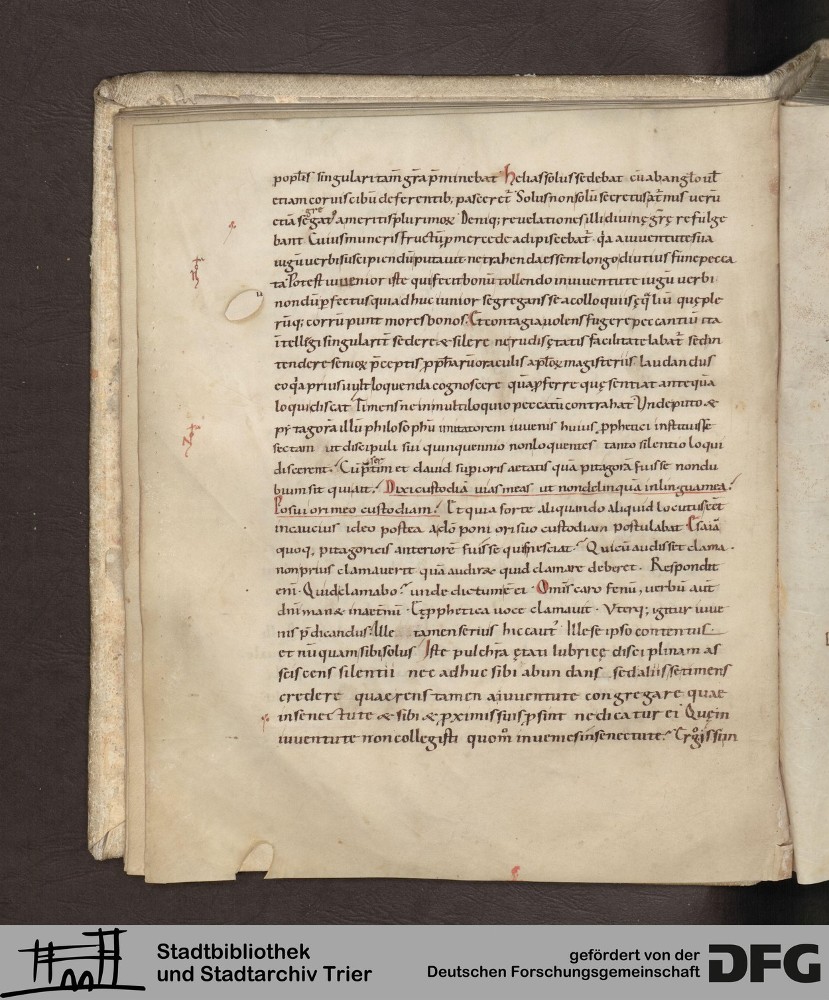 popl̄is singularitatē gr̄a p̄minebat Helias solus sedebat cū ab angl̄o vl̄
etiam corvis cibū deferentib; pasceret᷑ Solus non solū secretus at mis verū
etiā segat᷑ gre a meritis plurimoꝝ Deniq; revelationes illi divinę grę refulge
bant Cuius muneris fructū p mercede adipiscebat᷑ qa a iuventute sua
iugū verbi suscipiendū putavit ne trahenda essent longo diutius fune pecca
ta Potest iuvenior iste qui fecit bonū tollendo in iuventute iugū verbi
nondū pfectus quia adhuc iunior segregans se a colloquiis quę ple
rūq; corrūpunt mores bonos Et contagia volens fugere peccantiū ita
intellegi singularit᷑ sedere & silere ne rudis ętatis facilitate labat᷑ sed in
tendere senioꝝ p̄ceptis pphaꝝ oraculis apl̄oꝝ magisteriis laudandus
eo qa prius vult loquenda cognoscere quā pferre quę sentiat antequā
loqui discat Timens ne in multiloquio peccatū contrahat Unde puto &
pytagorā illū philosophū imitatorem iuvenis huius pphetici instituisse
sectam ut discipuli sui quinquennio non loquentes tanto silentio loqui
discerent Cū et david supioris aetatis quā pitagorā fuisse nondu
biumsit qui ait Dixi custodiā vias meas ut non delinquā in lingua mea
Posui ori meo custodiam Et quia forte aliquando aliquid locutus eēt
incautius ideo postea a dn̄o poni ori suo custodiam postulabat Esaiā
quoq; pitagoricis anteriorē fuisse quis nesciat Qui cū audisset clama
non prius clamaverit quā audiret quid clamare deberet Respondit
eni Quid clamabo unde dictum ē ei Omīs caro fenū, verbū aut̄
dnī manet in aet̄nū Et pphetica voce clamavit Uterq; igitur iuve
nis p̄dicandus Ille tamen serius hic caut᷑ Ille se ipso contentus
et nū quam sibi solus Iste pulchra ętati lubricę disciplinam as
sciscens silentii nec adhuc sibi abundans sed aliis se timens
credere quaerens tamen a iuventute congregare quae
in senectute & sibi & pximis suis psint ne dicatur ei Quę in
iuventute non collegisti quom̄ invenies in senectute Ergo si sun
Stadtbibliothek
und Stadtarchiv Trier
gefördert von der
Deutschen Forschungsgemeinschaft
DFG